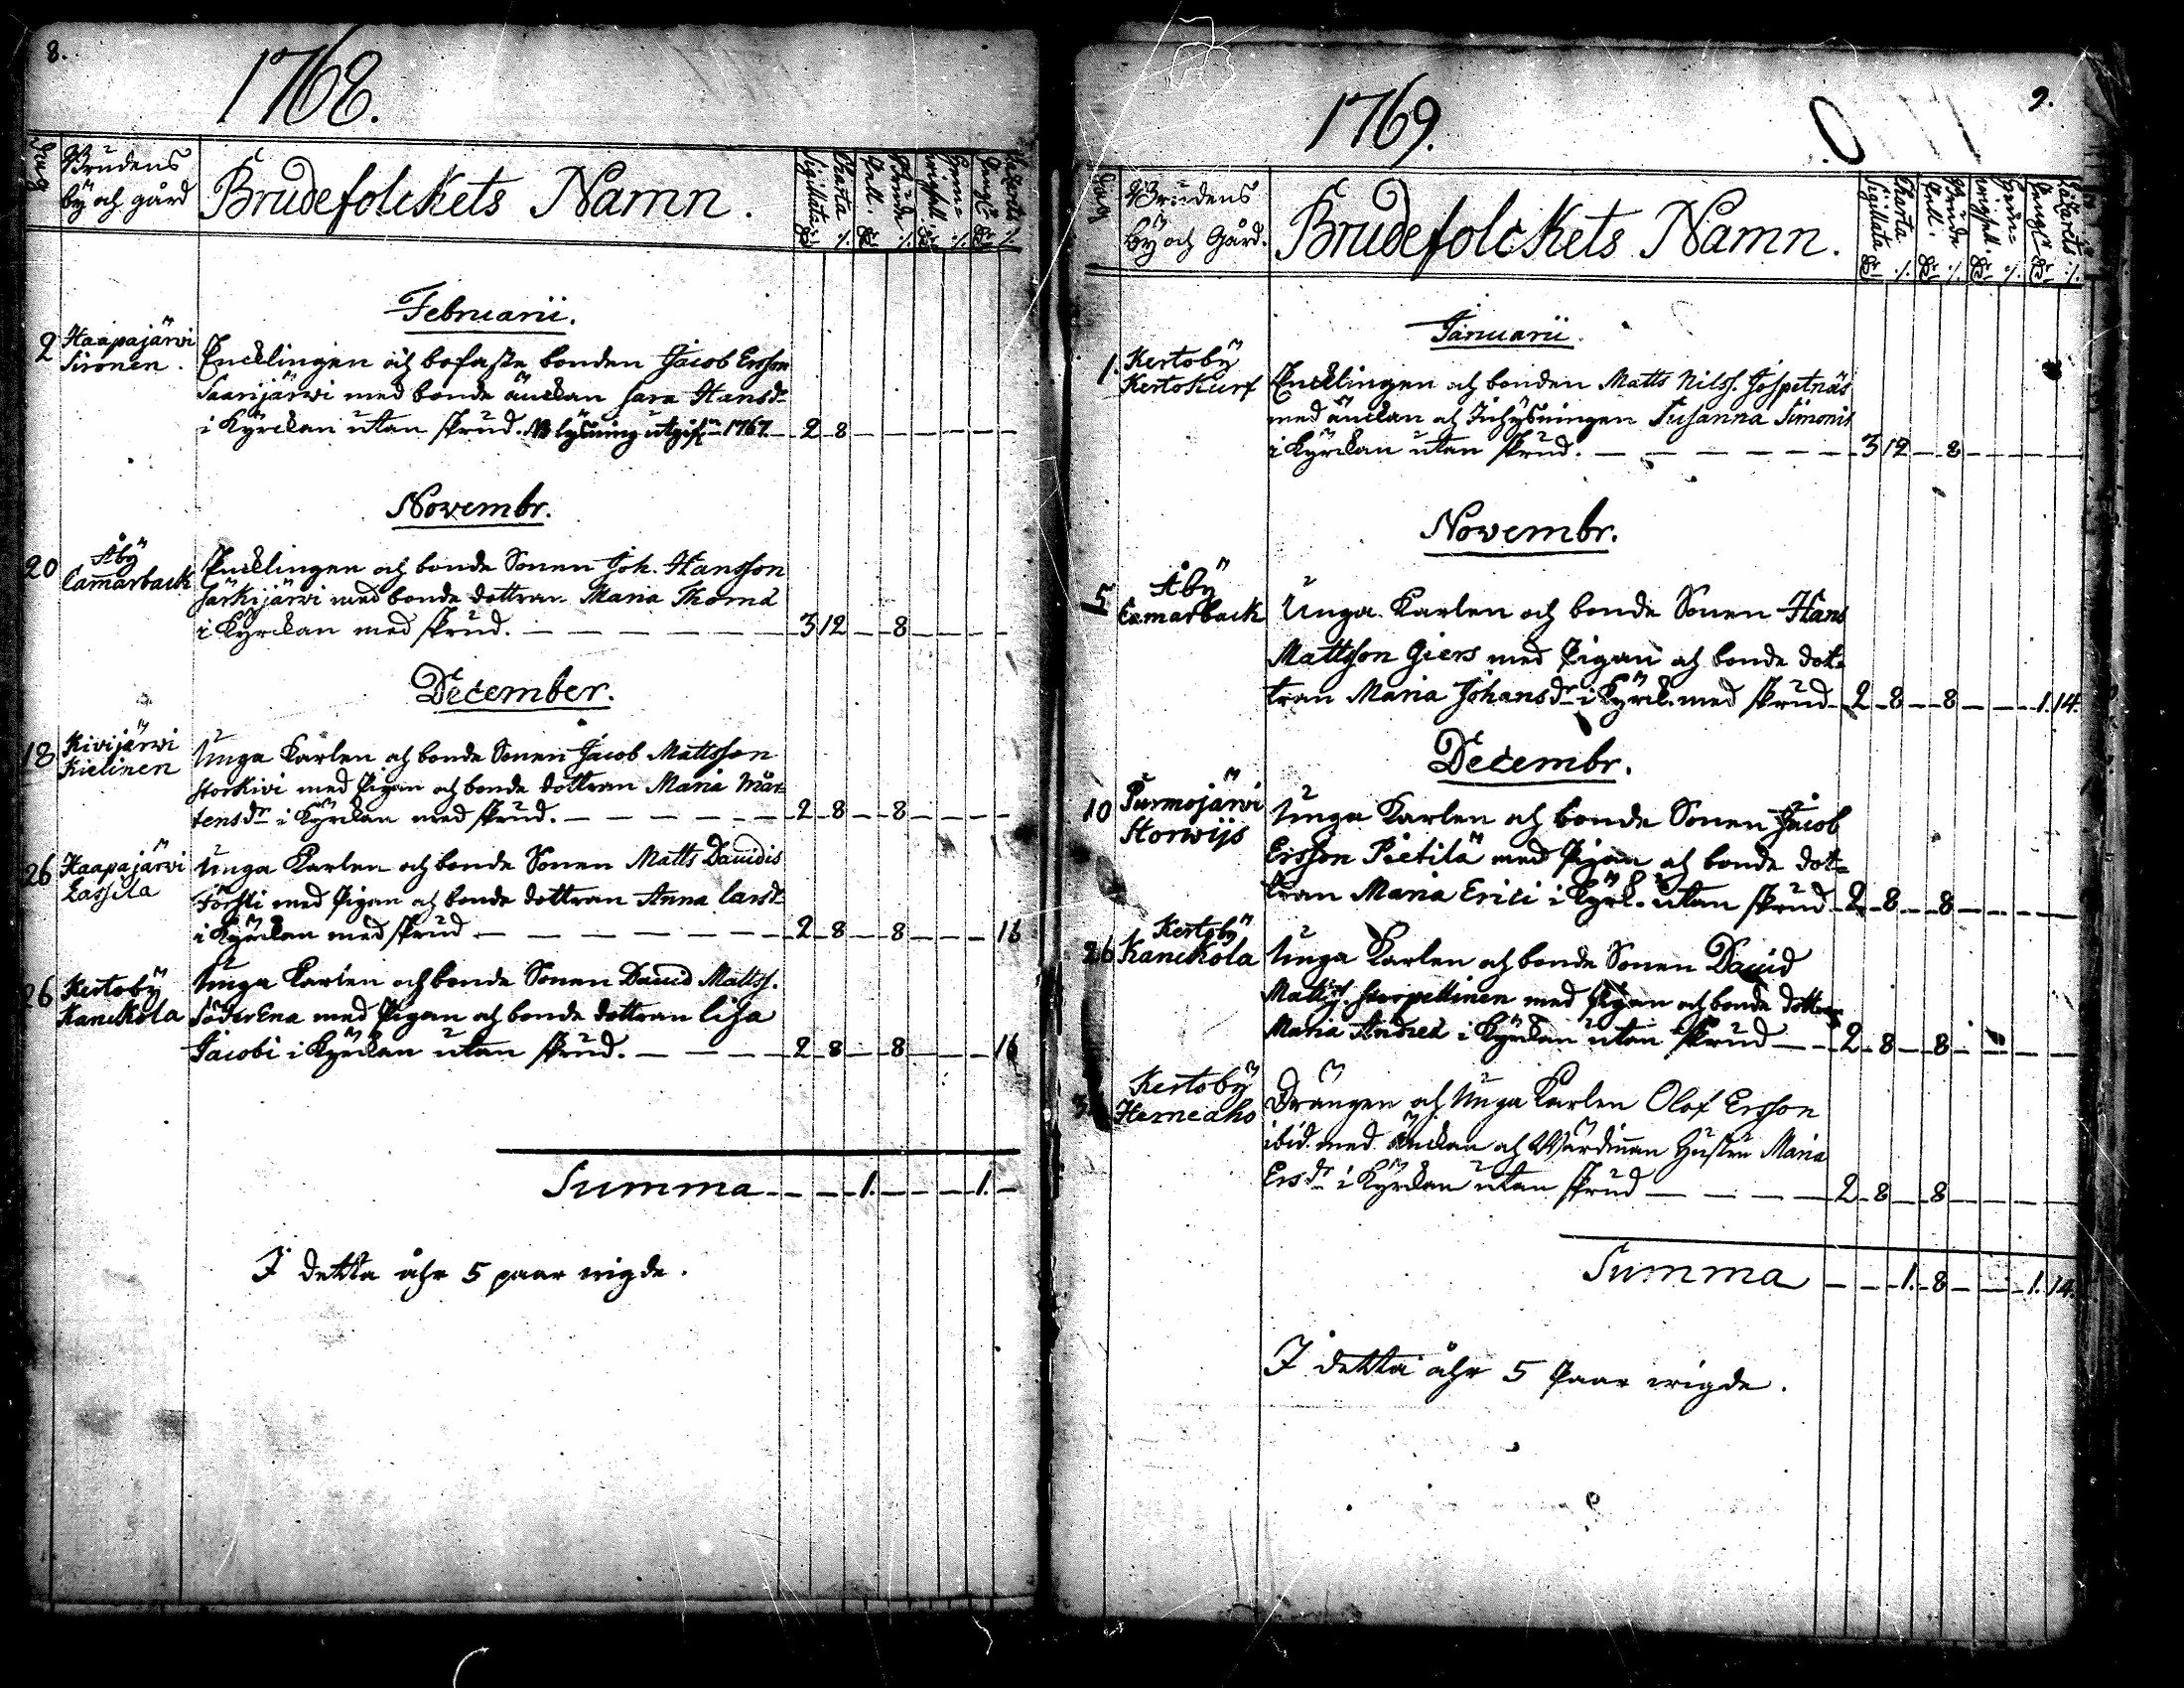 8.
1768.
Dag
Brudens
by och gård
Brudefolckets Namn.
Charta
Sigillata
Februarii.
2 Haapajärvi
Sironen.
Encklingen och bofaste bonden Jacob Ersson
Saarijärvi med bonde änckan Sara Hansdr
i Kyrckan utan skrud. NB lysning utgifn 1767 2 8
Novembr.
20 Åby
Camarback
Encklingen och bonde Sonen Joh. Hansson
Särkijärvi med bonde dottran Maria Thomæ
i Kyrckan med skrud. 3 12 8
December.
18 Kivijärvi
Kielinen
Unga Karlen och bonde Sonen Jacob Mattsson
Storkivi med Pigan och bonde dottran Maria Mår-
tensdr i Kyrckan med skrud. 2 8 8
26 Haapajärvi
Lassila
Unga Karlen och bonde Sonen Matts Davidis
Försti med Pigan och bonde dottran Anna Larsdr
i Kyrckan med skrud 2 8 8 16
26 Kertoby
Kanckola
Unga Karlen och bonde Sonen David Mattss.
SöderEna med Pigan och bonde dottran Lisa
Jacobi i Kyrckan utan skrud. 2 8 8 16
Summa 1. 1.
I detta åhr 5 paar vigde.
9.
1769.
Dag
Brudens
by och Gård.
Brudefolckets Namn.
Charta
Sigillata
Januarii.
1. Kertoby
Kertokurf
Encklingen och bonden Matts Nilss.
med änckan och Inhysningen Susanna Simonis
i Kyrckan utan skrud. 3 12 8
Novembr.
5 Åby
Camarback
Unga Karlen och bonde Sonen Hans
Mattsson Giers med Pigan och bonde dot-
tran Maria Johansdr i Kyrck. med skrud 2 8 8 1. 14.
Decembr.
10 Purmojärvi
Storwijs
Unga Karlen och bonde Sonen Jacob
Ersson Pietilä med Pigan och bonde dot-
tran Maria Erici i Kyrk. utan skrud 2 8 8
26 Kertoby
Kanckola
Unga Karlen och bonde Sonen David
Mattss. Storpettinen med Pigan och bonde dottran
Maria Andreæ i Kyrckan utan skrud 2 8 8
Kertoby
Herneaho
Drängen och Unga Karlen Olof Ersson
ibid. med Änckan och Wärdinnan Hustru Maria
Ersdr i Kyrckan utan skrud 2 8 8
Summa 1. 8 1. 14.
I detta åhr 5 Paar vigde.